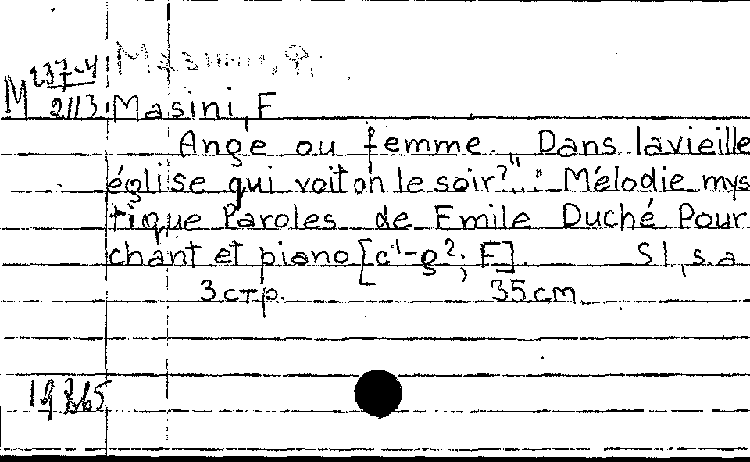 М 237-4 Мазини, Ф.
2113 Masini, F
Ange ou femme. „Dans la vieille
église qui voit on le soir?": Mélodie mys
tique Paroles de Emile Duché Pour
chant et piano [c¹-g²; F]. S l, s.a
3 стр. 35 cm